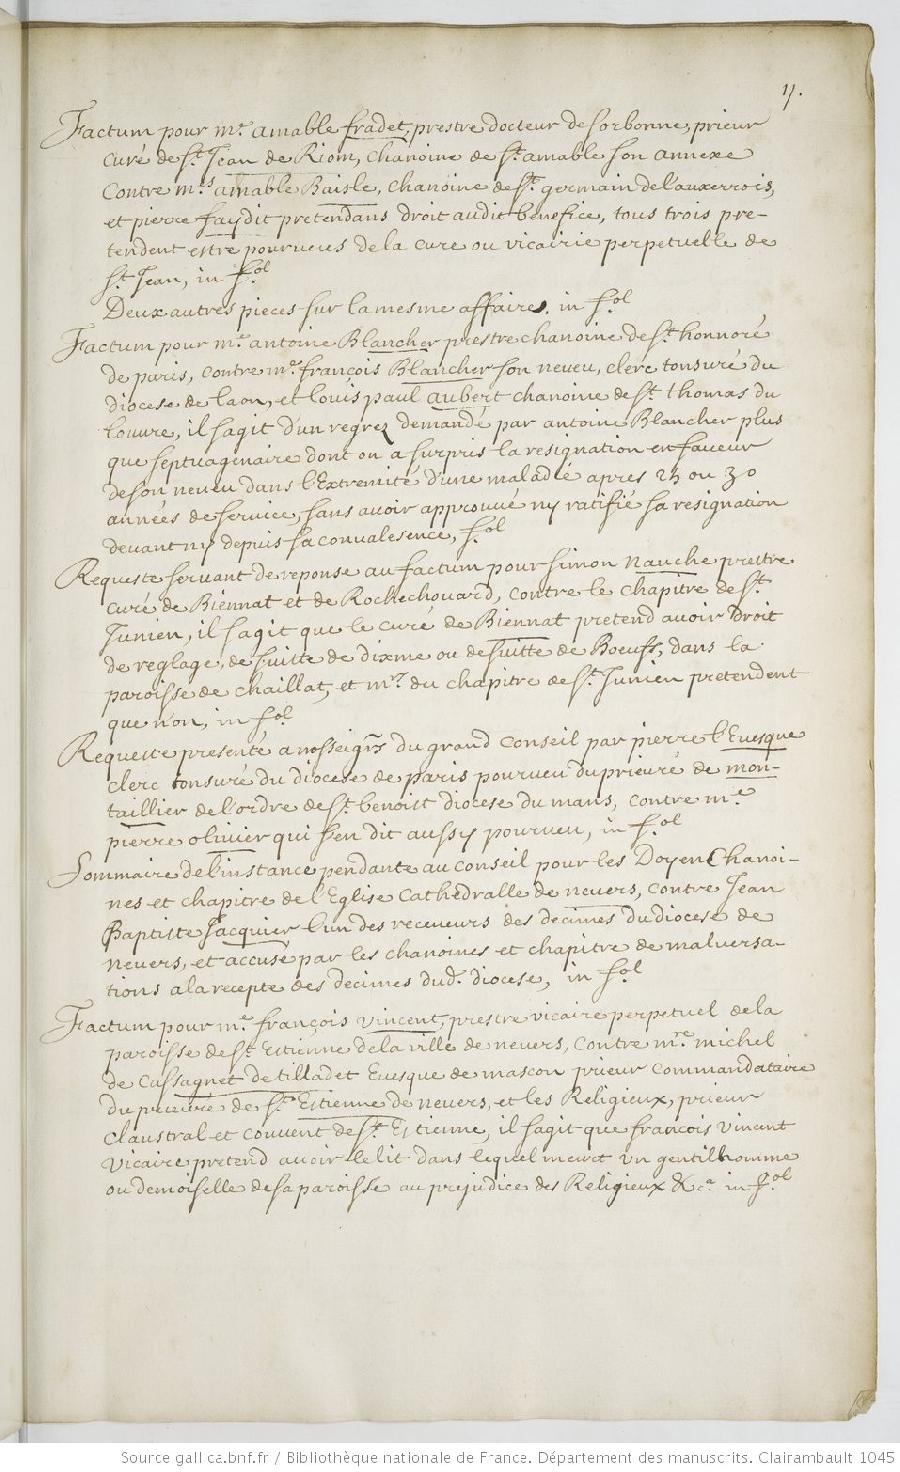 11.
Factum pour mr. amable fradet, prestre docteur de sorbonne, prieur
curé de st. Jean de Riom, chanoine de st. amable son annexe
contre mrs. amable Baisle, chanoine de st. germain de l'auxerrois,
et pierre faydit pretendans droit audit benefice, tous trois pre-
tendent estre pourveus de la cure ou vicairie perpetuelle de
st. Jean, in fol
Deux autres pieces sur la mesme affaire. in fol
Factum pour me. antoine Blancher prestre chanoine de st. honnoré
de paris, contre me. françois Blancher son neveu, clerc tonsuré du
diocese de laon, et louis paul aubert chanoine de st. thomas du
louvre, il s'agit d'un regrez demandé par antoine Blancher plus
que septuagenaire dont on a surpris la resignation en faveur
de son neveu dans l'Extremité d'une maladie apres 25 ou 30
années de service, sans avoir approuvé ny ratifié sa resignation
devant ny depuis sa convalesence, fol
Requeste servant de reponse au factum pour simon nauche prestre
curé de Biennat et de Rochechouard, contre le chapitre de st.
Junien, il s'agit que le curé de Biennat pretend avoir Droit
de reglage, de suitte de dixme ou de suitte de Boeufs, dans la
paroisse de chaillat, et mrs. du chapitre de st. Junien pretendent
que non, in fol
Requeste presenté a nosseigrs du grand conseil par pierre l'Evesque
clerc tonsuré du diocese de paris pourveu du prieuré de mon-
taillier de l'ordre de st. benoist diocese du mans, contre me
pierre olivier qui s'en dit aussy pourveu, in fol
Sommaire de l'instance pendante au conseil pour les Doyen Chanoi-
nes et chapitre de l'Eglise Cathedralle de nevers, contre Jean
Baptiste Jacquier l'un des receveurs des decimes du diocese de
nevers, et accusé par les chanoines et chapitre de malversa-
tions a la recepte des decimes dud. diocese, in fol
Factum pour me. françois vincent, prestre vicaire perpetuel de la
paroisse de st. Estienne de la ville de nevers, contre mre. michel
de Cassagnet de tilladet Evesque de mascon prieur commandataire
du prieuré de st. Estienne de nevers, et les Religieux, prieur
claustral et couvent de st. Estienne, il s'agit que françois vincent
vicaire pretend avoir le lit dans lequel meurt un gentilhomme
ou demoiselle de sa paroisse au prejudice des Religieux &ca. in fol
Source gallica.bnf.fr / Bibliothèque nationale de France. Département des manuscrits. Clairambault 1045